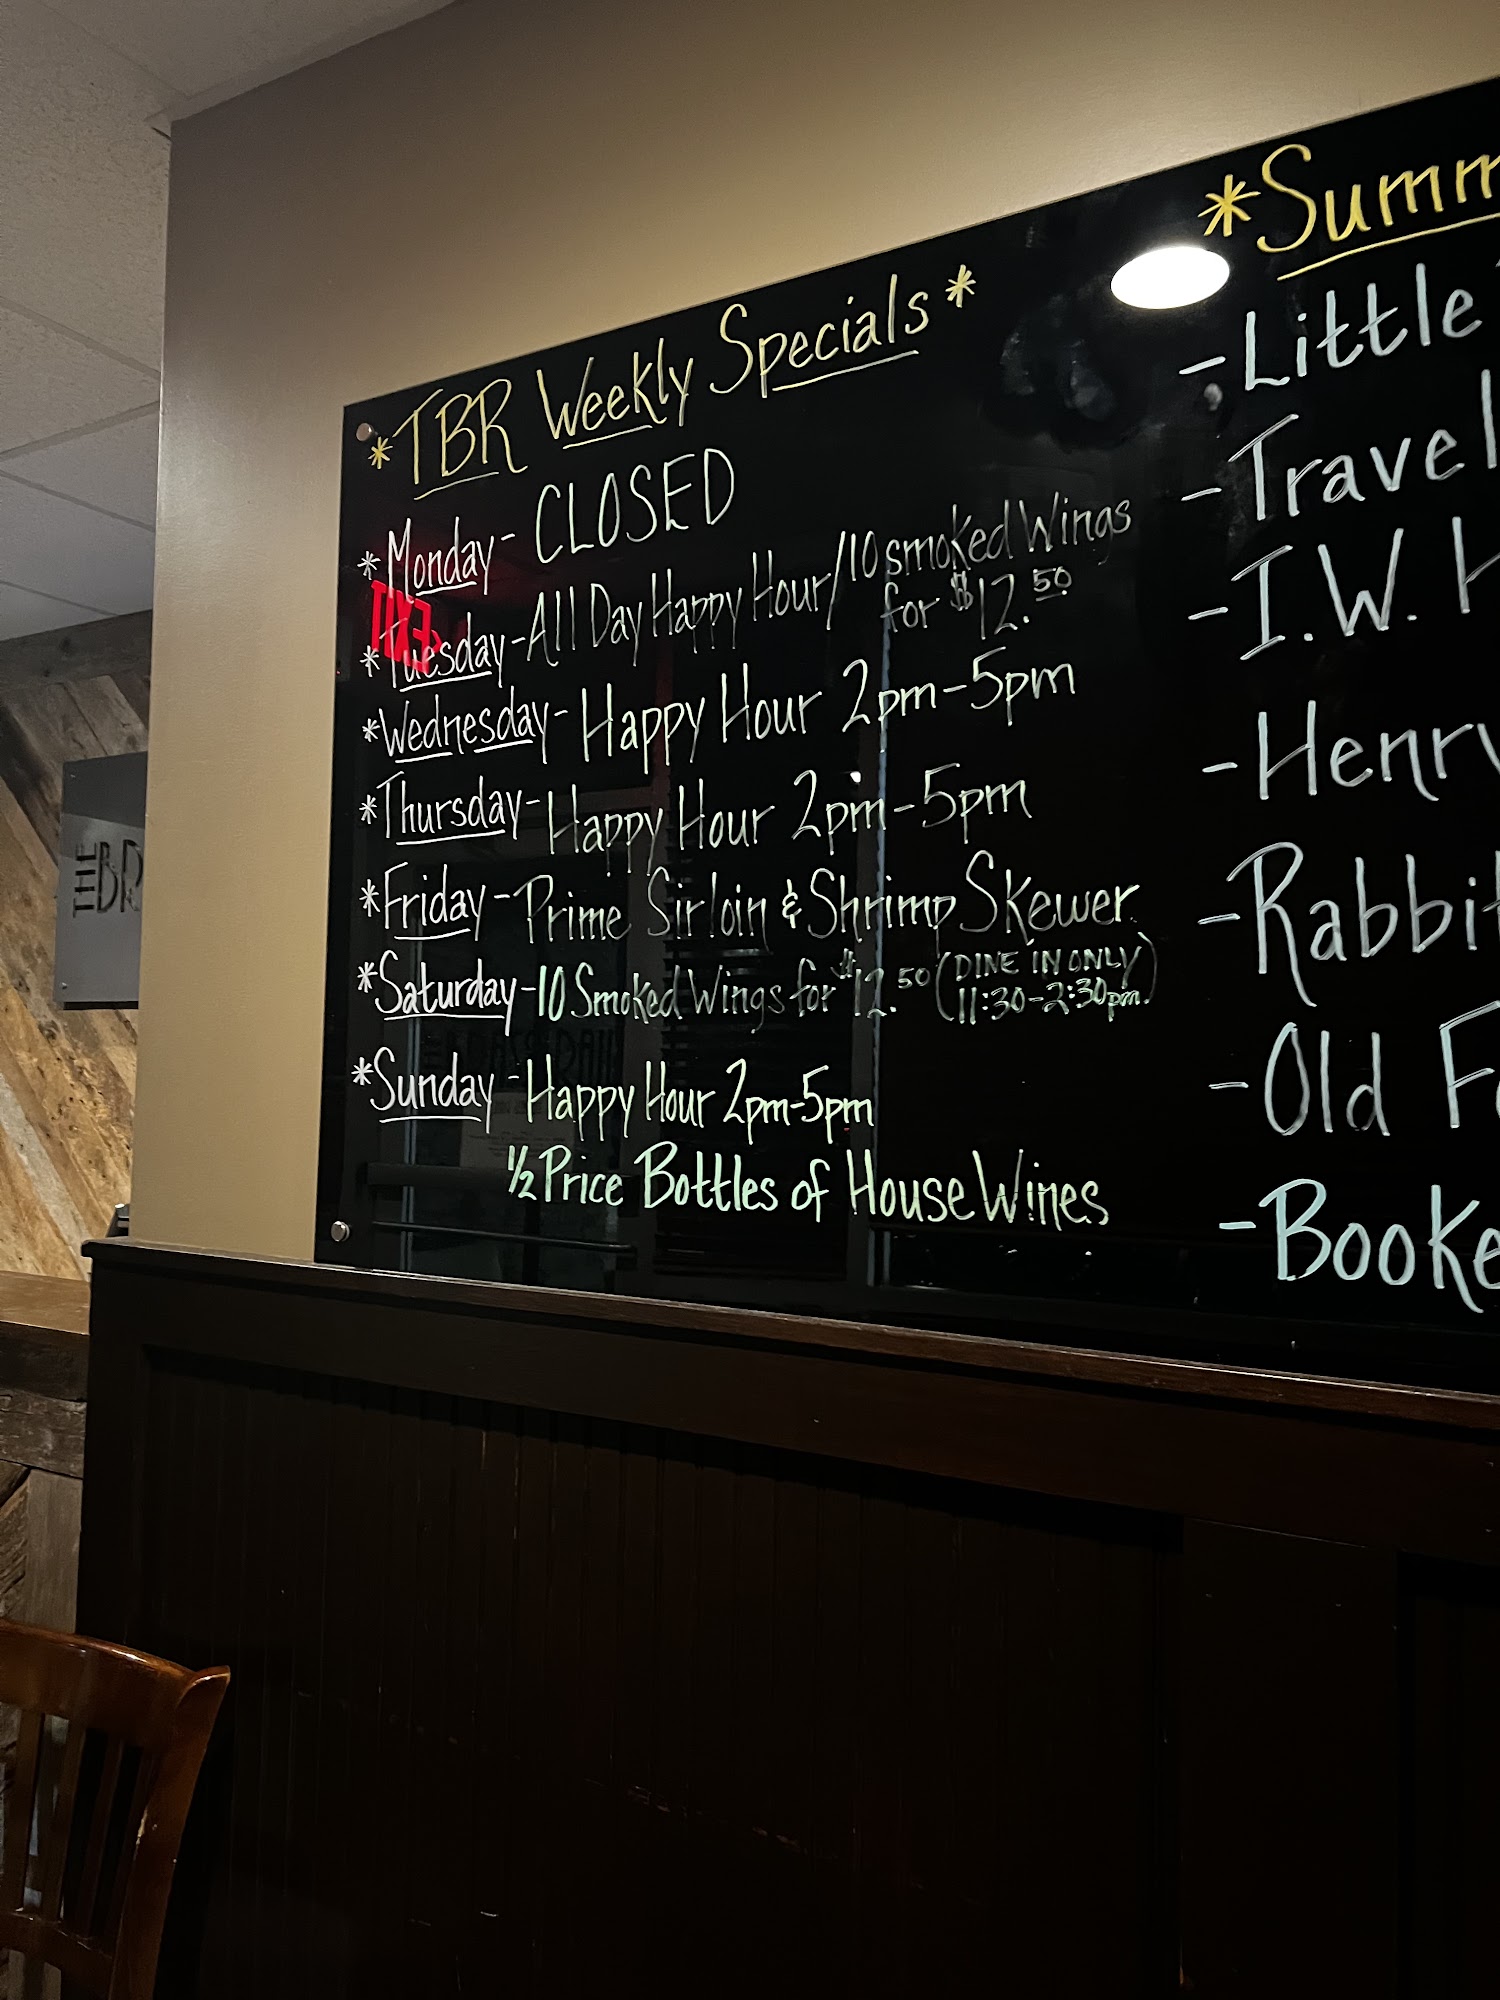 *TBR Weekly Specials*
*Monday - CLOSED
*Tuesday - All Day Happy Hour/10 smoked Wings
for $12.50
*Wednesday - Happy Hour 2pm-5pm
*Thursday - Happy Hour 2pm-5pm
*Friday - Prime Sirloin & Shrimp Skewer
*Saturday - 10 Smoked Wings for $12.50 (DINE IN ONLY
11:30-2:30pm.)
*Sunday - Happy Hour 2pm-5pm
1/2 Price Bottles of House Wines
*Summ
-Little
-Travel
-I.W. H
-Henry
-Rabbit
-Old F
-Booke
EXIT
THE
BR